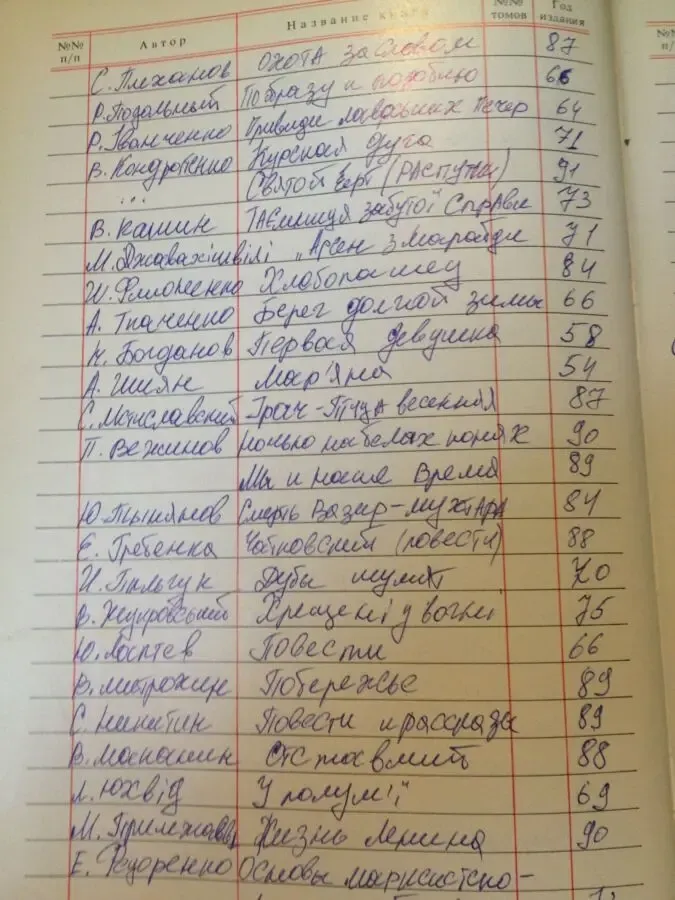 №№ п/п Автор Название книги №№ томов Год издания
С. Плеханов Охота за словом 87
Р. Подольный По образу и подобию 66
Р. Іванченко Привиди лаврських печер 64
В. Кондратенко Курская дуга 71
" Святой черт (Распутин) 91
В. Кашин Таємниця забутої справи 73
М. Джавахішвілі "Арсен з Марабди 71
И. Филоненко Хлебопашец 84
А. Ткаченко Берег долгой зимы 66
Н. Богданов Первая девушка 58
А. Шиян Мар'яна 54
С. Мстиславский Грач-птица весенняя 87
П. Вежинов Ночью на белых конях 90
Мы и наше время 89
Ю. Тынянов Смерть Вазир-Мухтара 84
Е. Гребенка Чайковский (повести) 88
И. Пильгук Дубы шумят 70
В. Жуковський Хрещені у вогні 75
Ю. Лаптев Повести 66
В. Митрохин Побережье 89
С. Никитин Повести и рассказы 89
В. Маканин Отставший 88
Л. Юхвід У полум'ї 69
М. Прилежаева Жизнь Ленина 90
Е. Федоренко Основы марксистско-
№№ п/п